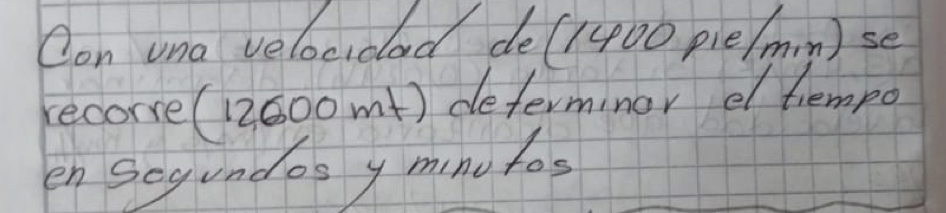 Con una velocidad de (1400 pie/min) se
recorre (12,600 mt) determinar el tiempo
en segundos y minutos